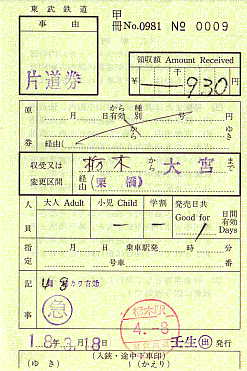 東武鉄道
甲
冊 No.0981 № 0009
事由
片道券
領収額 Amount Received
¥ 千 930 円
原券
から 種
月 日有効 別 号 円
から
経由( ) ゆき
収受又は 栃木 から 大宮 まで
変更区間 経由 (栗橋)
人員
大人 Adult 小児 Child 学割 発売日共
Good for 1 日間有効 Days
指定
月 日 乗車駅発 時 分
号車 番
記事
カワ有効
急
4.-8
18.3.18 壬生(出) 発行
(入鋏・途中下車印)
(ゆき) (かえり)